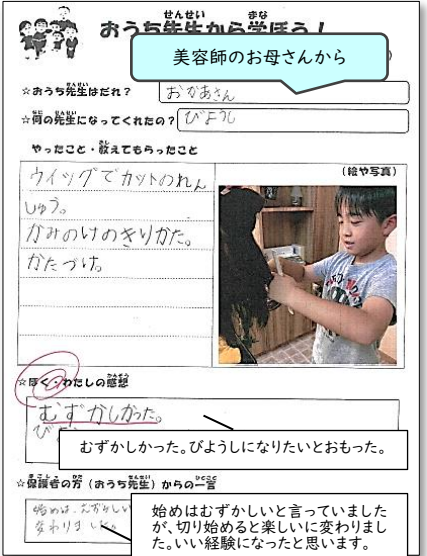 おうち先生から学ぼう！
せんせい
まな
美容師のお母さんから
☆おうち先生はだれ？
せんせい
おかあさん
☆何の先生になってくれたの？
なに
せんせい
びようし
やったこと・教えてもらったこと
おし
ウイッグでカットのれん
しゅう。
かみのけのきりかた。
かたづけ。
（絵や写真）
☆ぼく・わたしの感想
かんそう
むずかしかった。
び
むずかしかった。びようしになりたいとおもった。
☆保護者の方（おうち先生）からの一言
ほごしゃ
かた
せんせい
ひとこと
始めは、むずかしい
変わりました。
始めはむずかしいと言っていました
が、切り始めると楽しいに変わりまし
た。いい経験になったと思います。